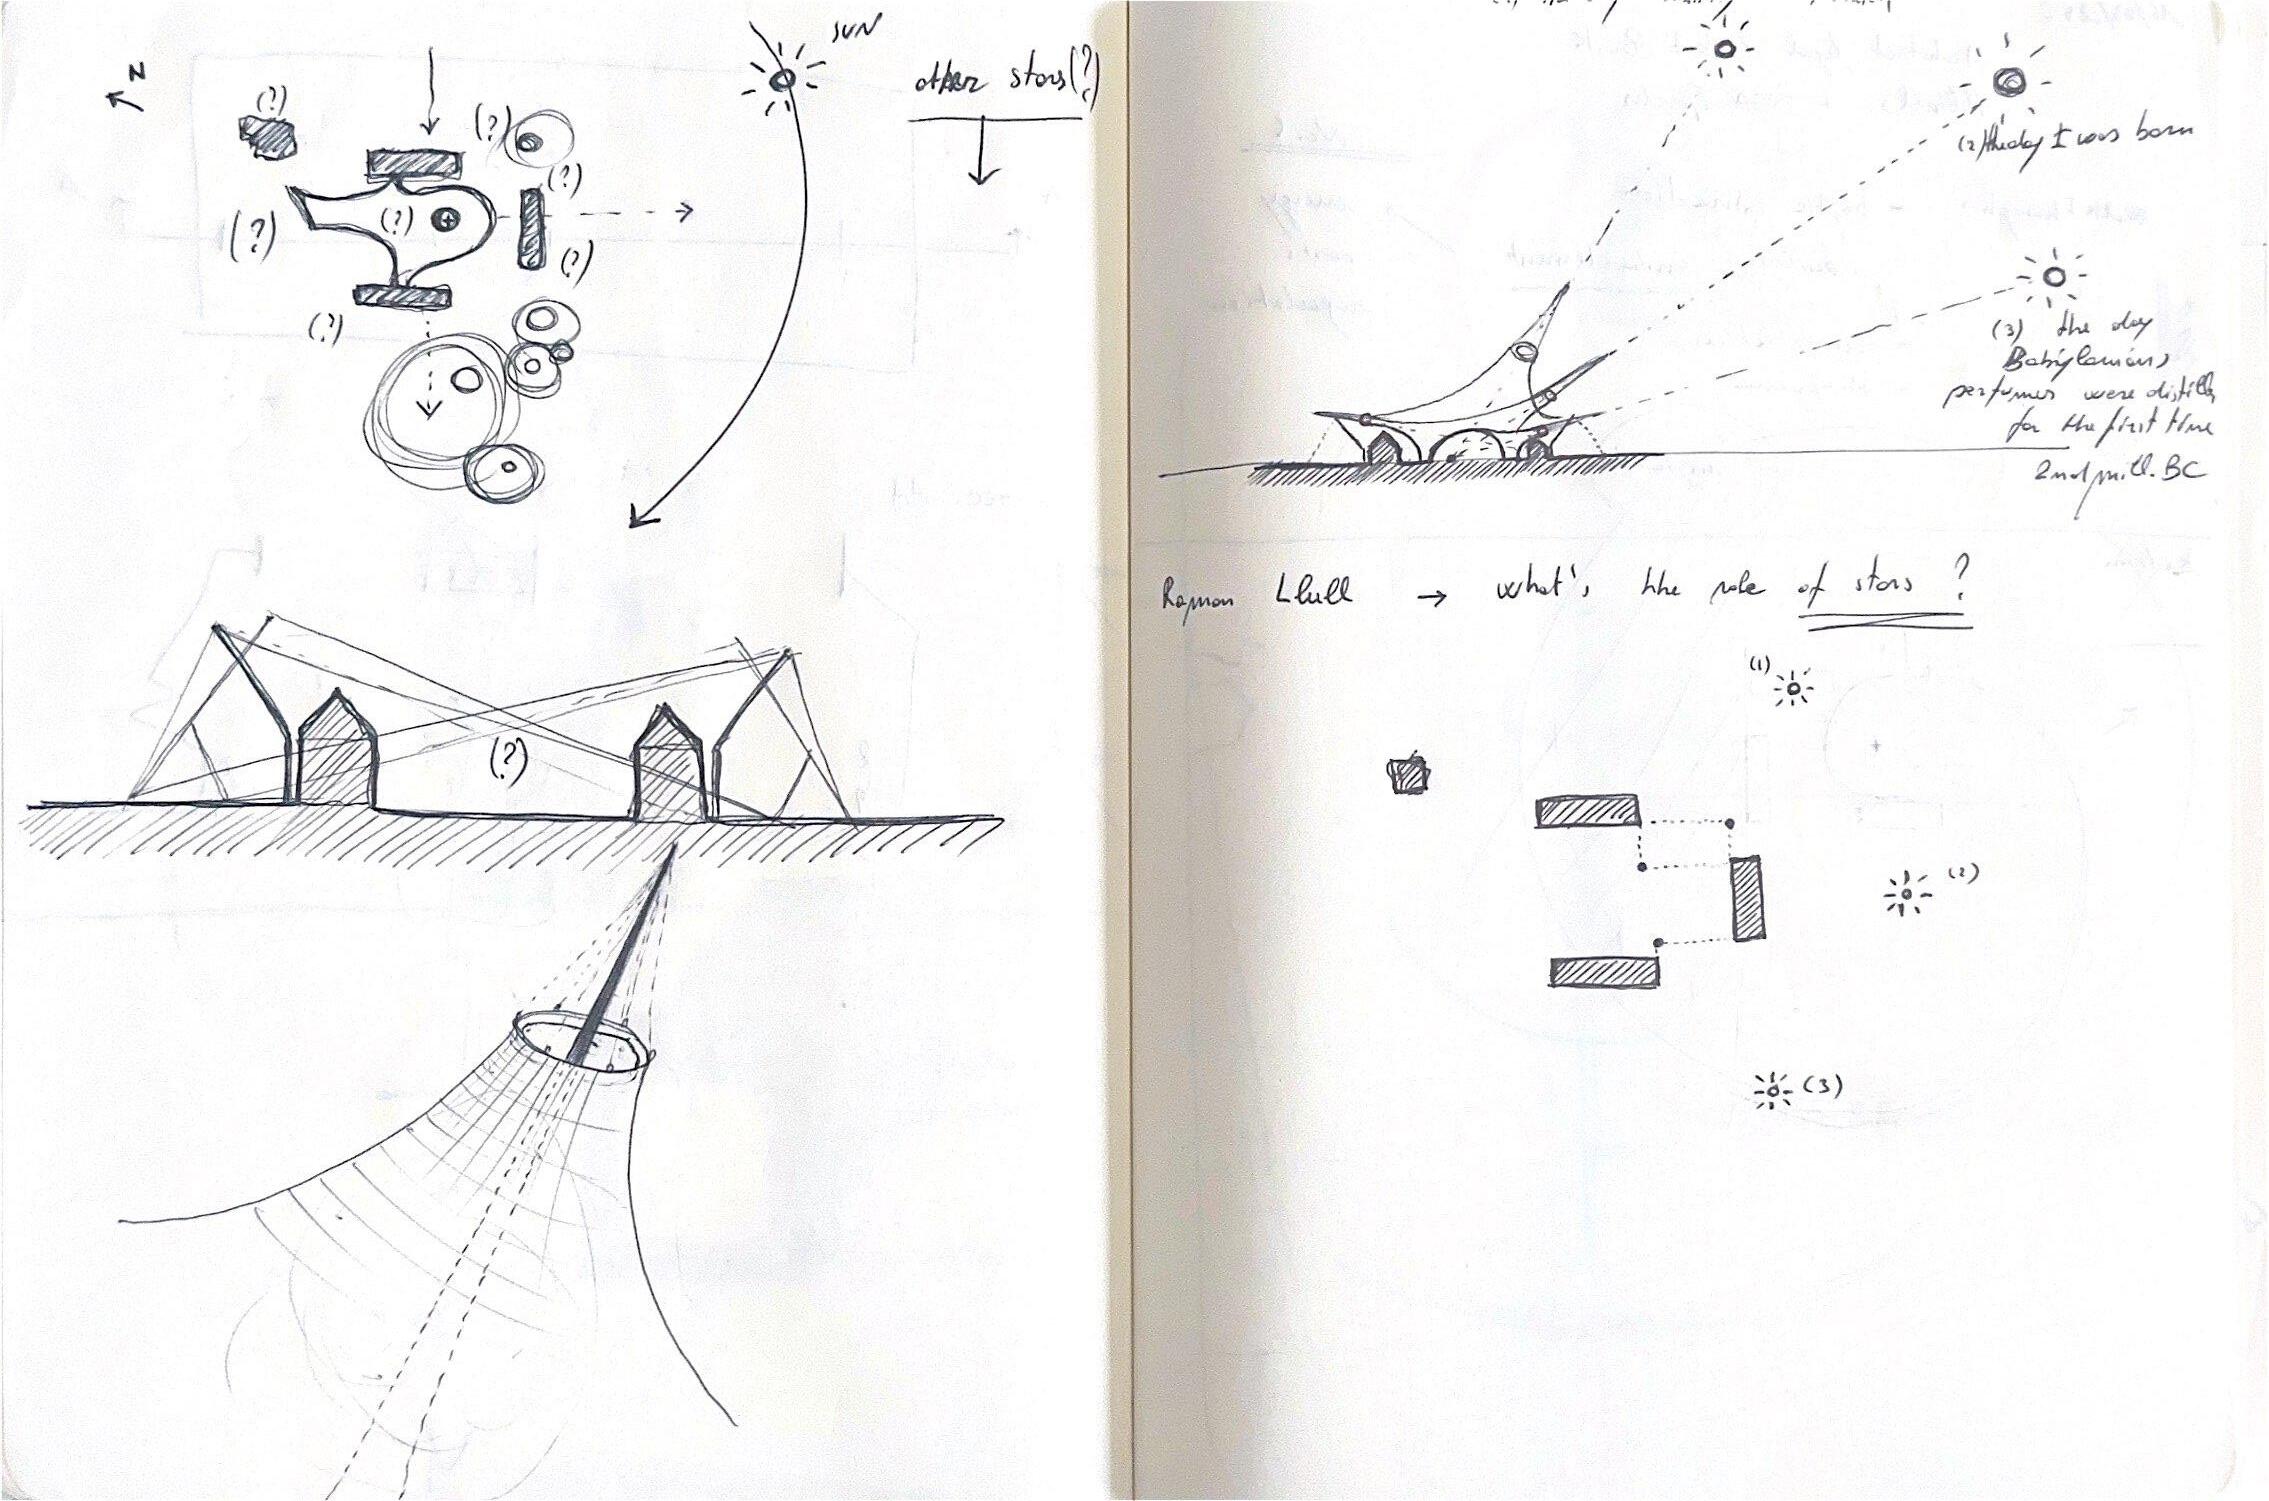 N
SUN
other stars(?)
(?)
(?)
(?)
(?)
(?)
(?)
(?)
(?)
(2) the day I was born
(3) the day
Babylonians
perfumes were distill
for the first time
2nd mill. BC
Ramon Llull → what's the role of stars ?
(1)
(2)
(3)